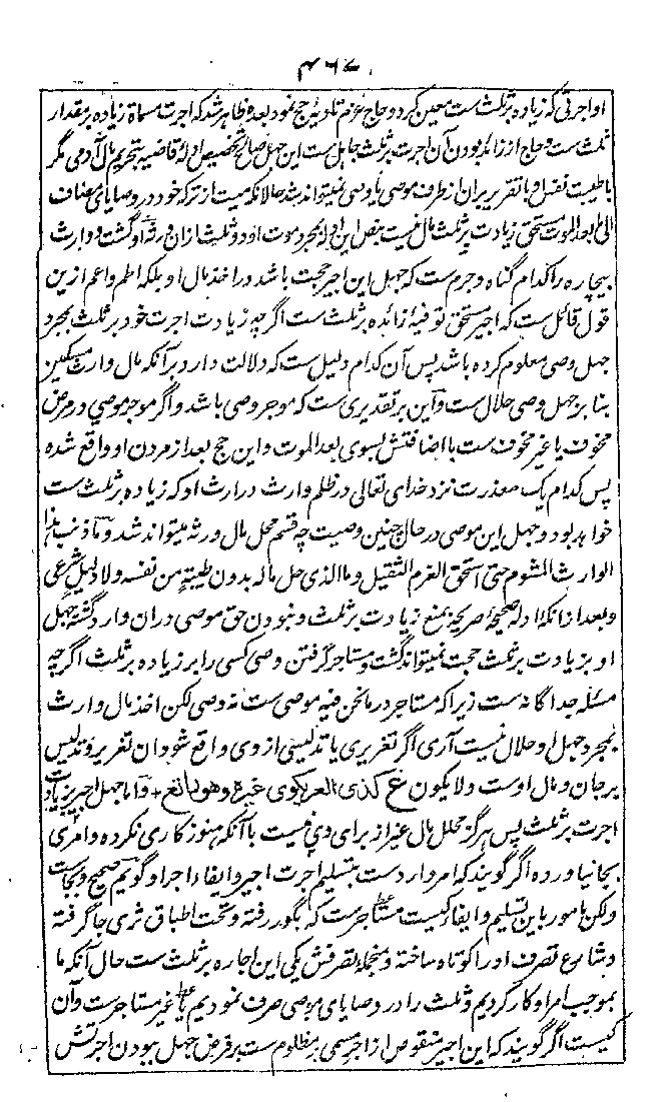 ۴۶۷
او اجرتی که زیاده بر ثلث ست معین کرد و حاج عزم تادیه حج نمود بعده ظاهر شد که اجرت مسماة زیاده بر مقدار
ثلث ست و حاج از زائد بودن آن اجرت بر ثلث جاهل ست این جهل صالح تخصیص ادله قاضیه بتحریم مال آدمی مگر
با طیبت نفس او با تقریر بران از طرف موصی یا وصی نمیتواند شد حالانکه میت از ترکه خود در وصایای مضاف
الی بعد الموت مستحق زیادت بر ثلث مال نیست بنص این ادله بمجرد موت او دو ثلث ازان ورثه او گشت و وارث
بیچاره را کدام گناه و جرم ست که جهل این اجیر حجت باشد در اخذ مال او بلکه اطم و اعم ازین
قول قائل ست که اجیر مستحق توفیه زائده بر ثلث ست اگرچه زیادت اجرت خود بر ثلث بمجرد
جهل وصی معلوم کرده باشد پس آن کدام دلیل ست که دلالت دارد بر آنکه مال وارث مسکین
بنا بر جهل وصی حلال ست و این بر تقدیری ست که موجر وصی باشد و اگر موجر موصی در مرض
مخوف یا غیر مخوف ست با اضافتش بسوی بعد الموت و این حج بعد از مردن او واقع شده
پس کدام یک معذرت نزد خدای تعالی در ظلم وارث در ارث او که زیاده بر ثلث ست
خواهد بود و جهل این موصی در حال چنین وصیت چه قسم محل مال ورثه میتواند شد و ما ذنب هذا
الوارث المشوم حتی استحق الغرم الثقیل و ما الذی حل ماله بدون طیبة من نفسه و لا دلیل شرعی
و بعد ازانکه ادله صحیحه صریحه بمنع زیادت بر ثلث و نبودن حق موصی دران وارد گشته جهل
او بزیادت بر ثلث حجت نمیتواند گشت و مستاجر گرفتن وصی کسی را بر زیاده بر ثلث اگرچه
مسئله جداگانه ست زیرا که مستاجر در ما نحن فیه موصی ست نه وصی لکن اخذ مال وارث
بمجرد جهل او حلال نیست آری اگر تغریری یا تدلیسی از وی واقع شود آن تغریر و تدلیس
بر جان و مال اوست و لا یکون ع کذی العر یکوی غیره و هو راتع + و اما جهل اجیر بزیادت
اجرت بر ثلث پس هرگز محلل مال غیر از برای وی نیست با آنکه هنوز کاری نکرده و امری
بجا نیاورده اگر گویند که امر وارد ست بتسلیم اجرت اجیر و ایفاء اجر او گوییم صحیح و بجاست
ولکن مامور باین تسلیم و ایفا کیست مستاجر ست که بگور رفته و تحت اطباق ثری جا گرفته
و شارع تصرف او را کوتاه ساخته و منجمله تصرفش یکی این اجاره بر ثلث ست حال آنکه ما
بموجب امر او کار کردیم و ثلث را در وصایای موصی صرف نمودیم یا غیر مستاجر ست و آن
کیست اگر گویند که این اجیر منقوص از اجر مسمی مظلوم ست بر فرض جهل ببودن اجرتش